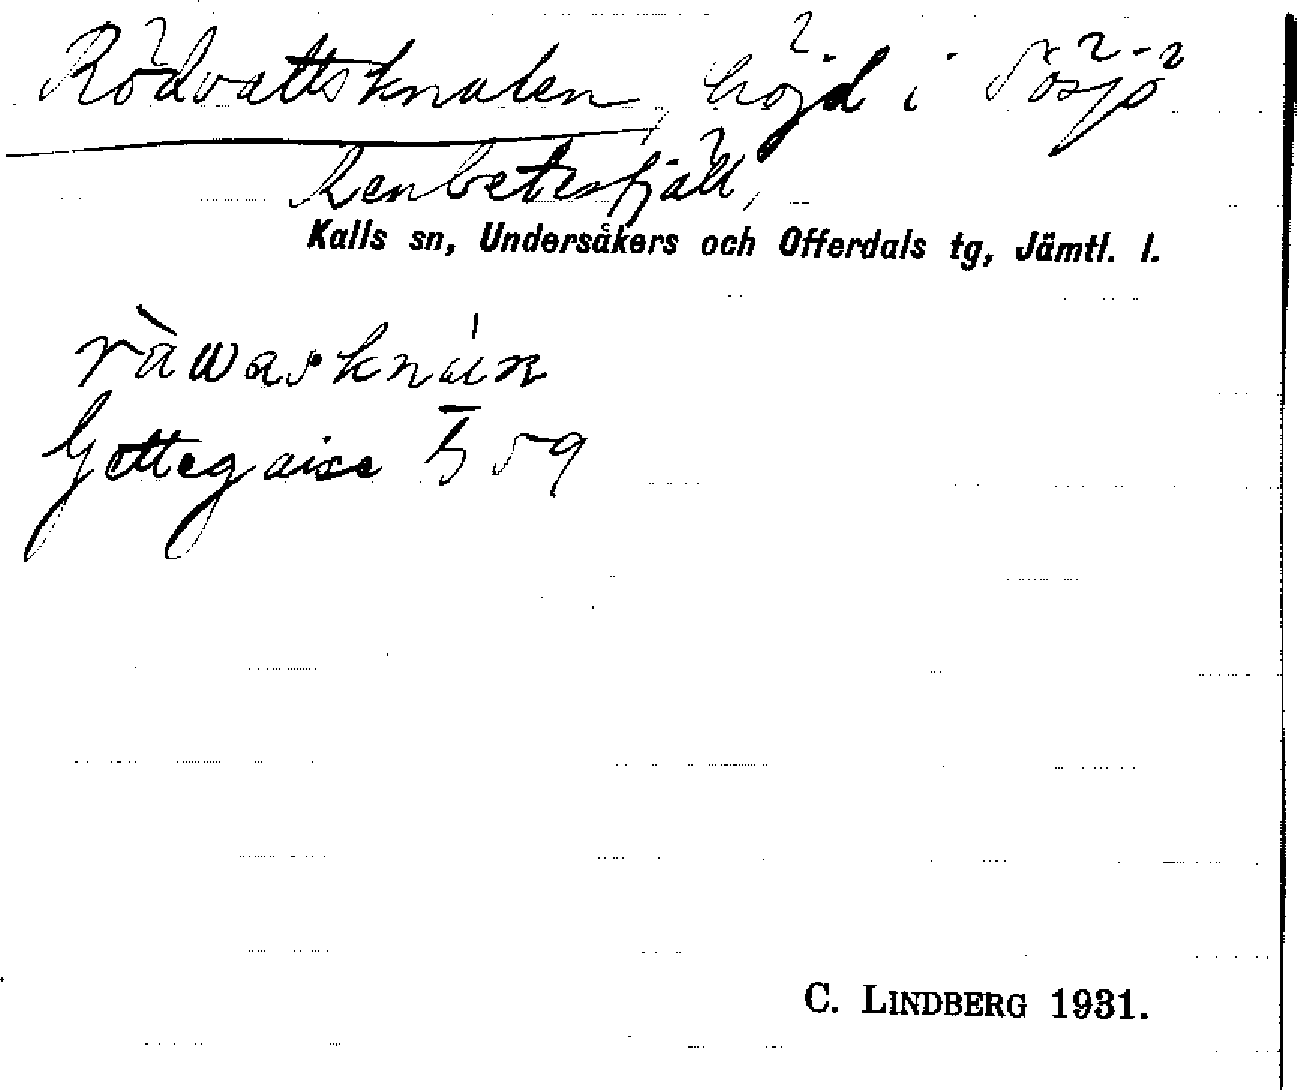 Rödvattsknalen, höjd i Sösjö
Renbetesfjäll,
Kalls sn, Undersåkers och Offerdals tg, Jämtl. l.
ràwasknáın
Gettegaise 59
C. LINDBERG 1931.